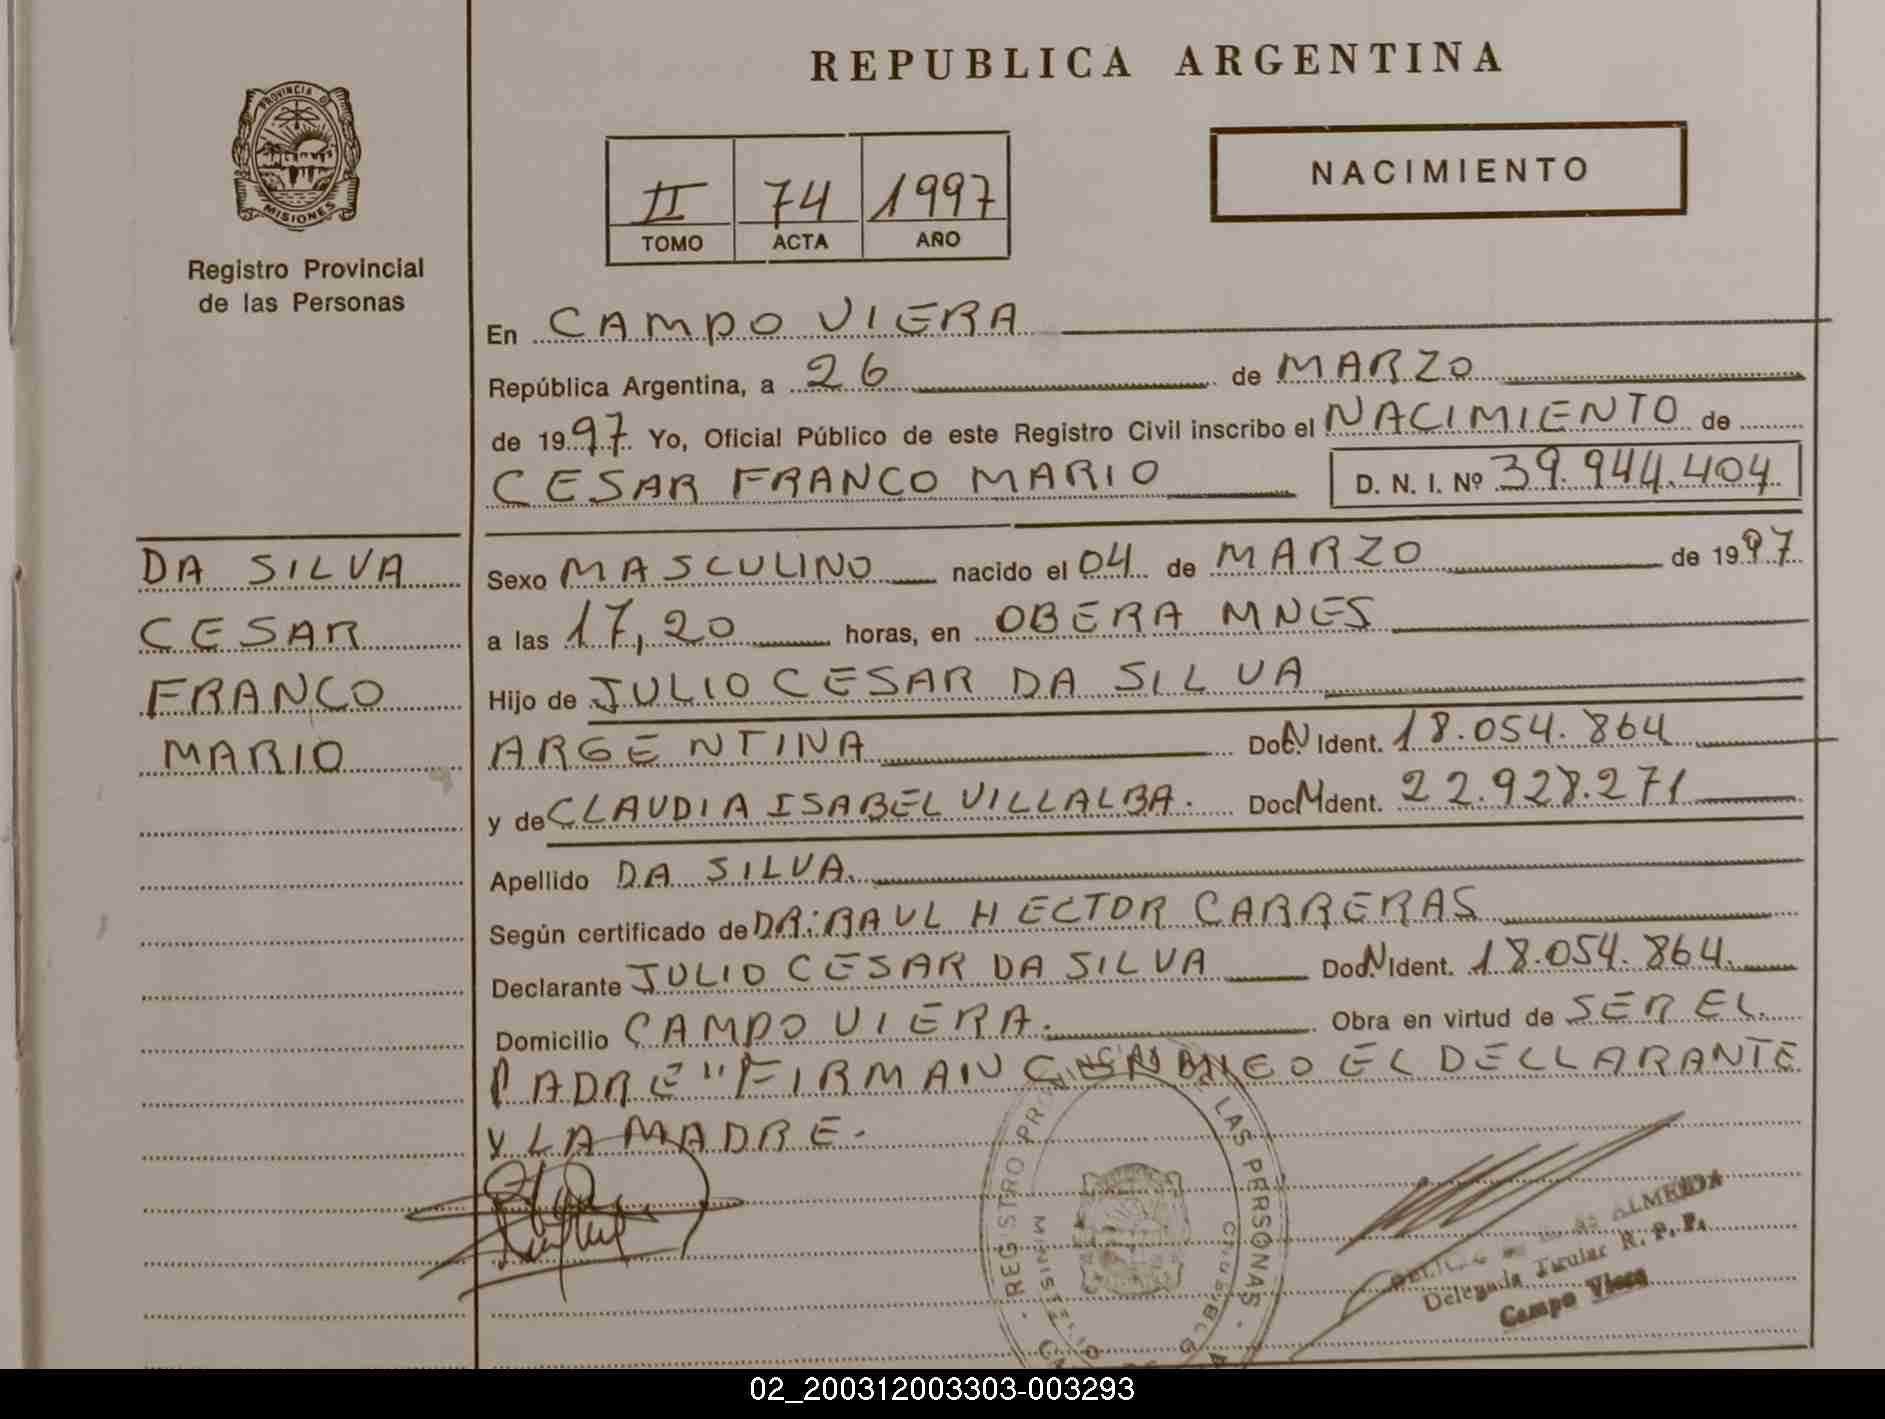 REPUBLICA ARGENTINA
PROVINCIA DE
MISIONES
Registro Provincial
de las Personas
II 74 1997
TOMO ACTA AÑO
NACIMIENTO
En CAMPO VIERA
República Argentina, a 26 de MARZO
de 1997 Yo, Oficial Público de este Registro Civil inscribo el NACIMIENTO de
CESAR FRANCO MARIO D. N. I. Nº 39.944.404
DA SILVA
CESAR
FRANCO
MARIO
Sexo MASCULINO nacido el 04 de MARZO de 1997
a las 17,20 horas, en OBERA MNES
Hijo de JULIO CESAR DA SILVA
ARGENTINA Doc. N Ident. 18.054.864
y de CLAUDIA ISABEL VILLALBA. Doc. N Ident. 22.928.271
Apellido DA SILVA.
Según certificado de DR: RAUL HECTOR CARRERAS
Declarante JULIO CESAR DA SILVA Doc. N Ident. 18.054.864.
Domicilio CAMPO VIERA. Obra en virtud de SER EL
PADRE" FIRMAN CONMIGO EL DECLARANTE
Y LA MADRE.
REGISTRO PROVINCIAL DE LAS PERSONAS
ALMEIDA
Delegada Titular R. P. P.
Campo Viera
02_200312003303-003293